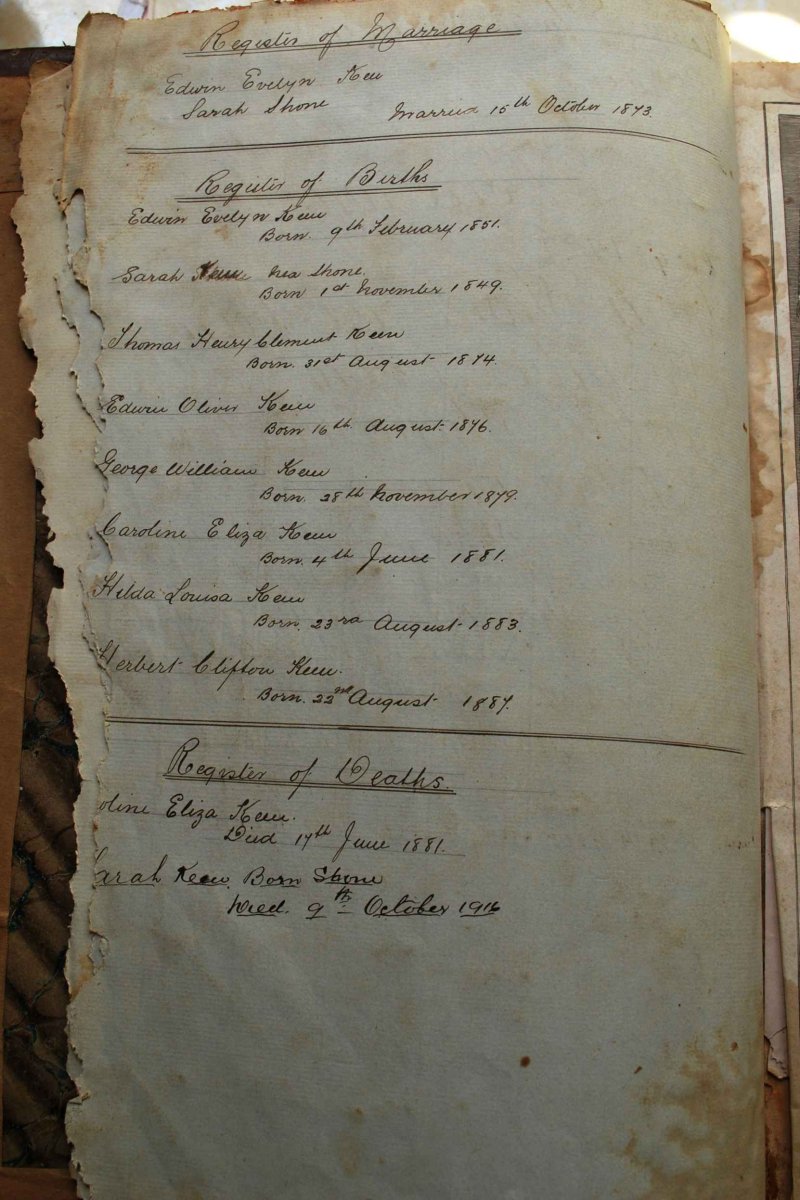 Register of Marriage
Edwin Evelyn Keen
Sarah Shone Married 15th October 1873.
Register of Births
Edwin Evelyn Keen
Born. 9th February 1851.
Sarah Keen nea Shone.
Born 1st November 1849.
Thomas Henry Clement Keen
Born. 31st August 1874.
Edwin Oliver Keen
Born 16th August 1876.
George William Keen
Born. 28th November 1879.
Caroline Eliza Keen
Born. 4th June 1881.
Hilda Louisa Keen
Born. 23rd August 1883.
Herbert Clifton Keen.
Born. 22nd August 1887.
Register of Deaths.
oline Eliza Keen.
Died 17th June 1881.
arah Keen. Born Shone
Died. 9th October 1916